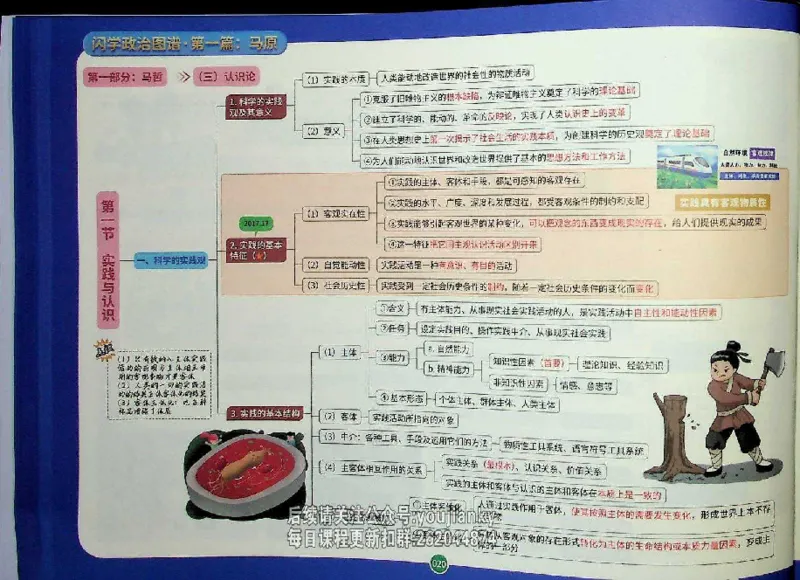 闪学政治图谱·第一篇：马原
第一部分：马哲
（三）认识论
第一节 实践与认识
一、科学的实践观
1. 科学的实践观及其意义
（1）实践的本质
人类能动地改造世界的社会性的物质活动
（2）意义
①克服了旧唯物主义的根本缺陷，为辩证唯物主义奠定了科学的理论基础
②建立了科学的、能动的、革命的反映论，实现了人类认识史上的变革
③在人类思想史上第一次揭示了社会生活的实践本质，为创建科学的历史观奠定了理论基础
④为人们能动地认识世界和改造世界提供了基本的思想方法和工作方法
自然环境
客观规律
实践具有客观物质性
2017.17
2. 实践的基本特征（★）
（1）客观实在性
①实践的主体、客体和手段，都是可感知的客观存在
②实践的水平、广度、深度和发展过程，都受客观条件的制约和支配
③实践能够引起客观世界的某种变化，可以把观念的东西变成现实的存在，给人们提供现实的成果
④这一特征把它同主观认识活动区别开来
（2）自觉能动性
实践活动是一种有意识、有目的活动
（3）社会历史性
实践受到一定社会历史条件的制约，随着一定社会历史条件的变化而变化
3. 实践的基本结构
（1）主体
①含义
有主体能力、从事现实社会实践活动的人，是实践活动中自主性和能动性因素
②任务
设定实践目的、操作实践中介、从事现实社会实践
③能力
a. 自然能力
b. 精神能力
知识性因素（首要）
理论知识、经验知识
非知识性因素
情感、意志等
④基本形态
个体主体、群体主体、人类主体
（2）客体
实践活动所指向的对象
（3）中介：各种工具、手段及运用它们的方法
物质性工具系统、语言符号工具系统
（4）主客体相互作用的关系
实践关系（最根本）、认识关系、价值关系
实践的主体和客体与认识的主体和客体在本质上是一致的
人通过实践作用于客体，使其按照主体的需要发生变化，形成世界上本不存
客观对象的存在形式转化为主体的生命结构或本质力量因素，变成主
体的一部分
后续请关注公众号:youtiankv
每日课程更新扣群:282044874
020